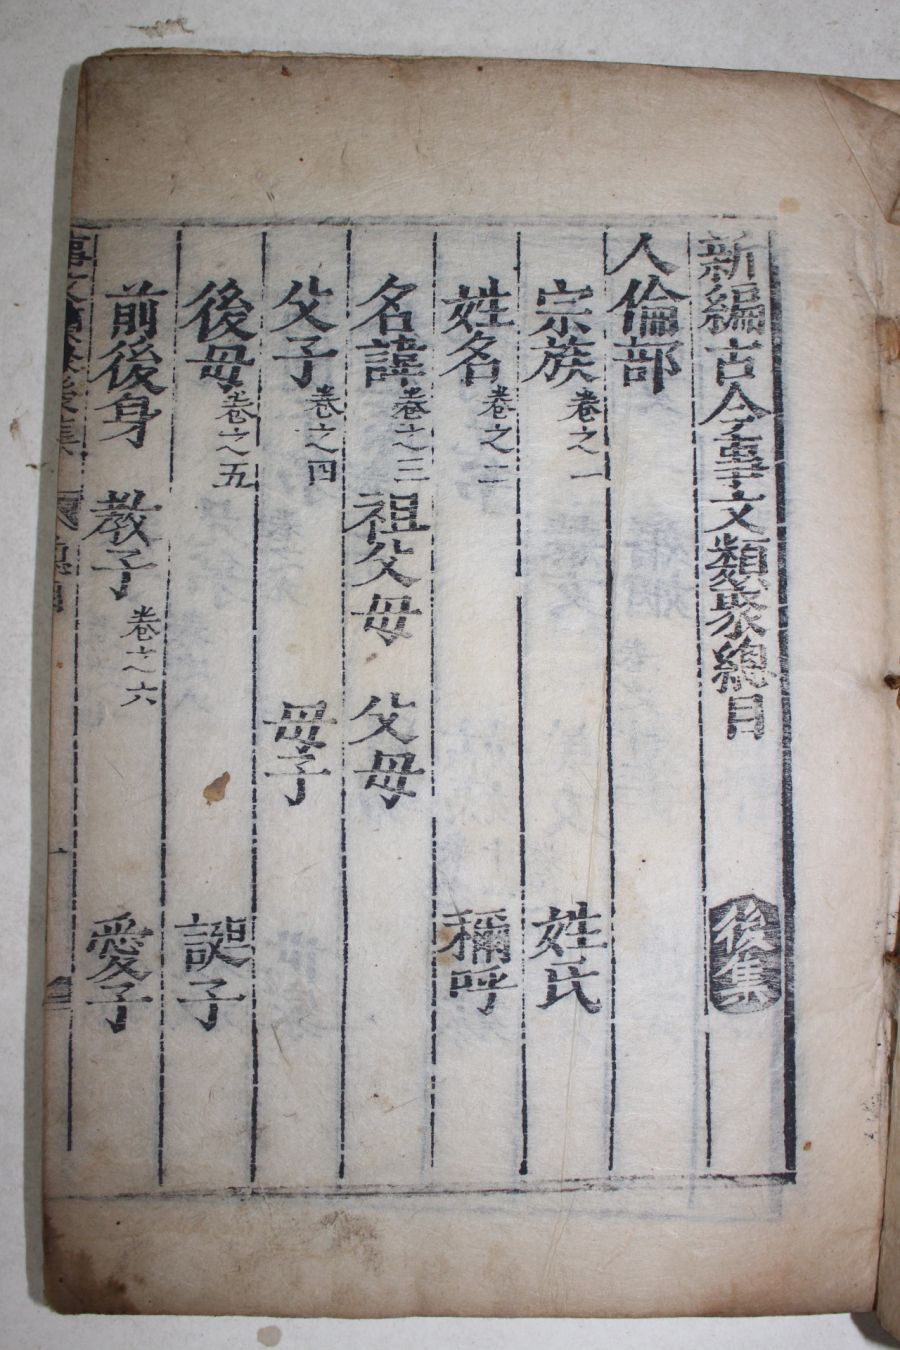 新編古今事文類聚總目 後集
人倫部
宗族卷之一 姓氏
姓名卷之二 稱呼
名諱卷之三 祖父母 父母
父子卷之四 母子
後母卷之五 誕子
前後身 敎子卷之六 愛子